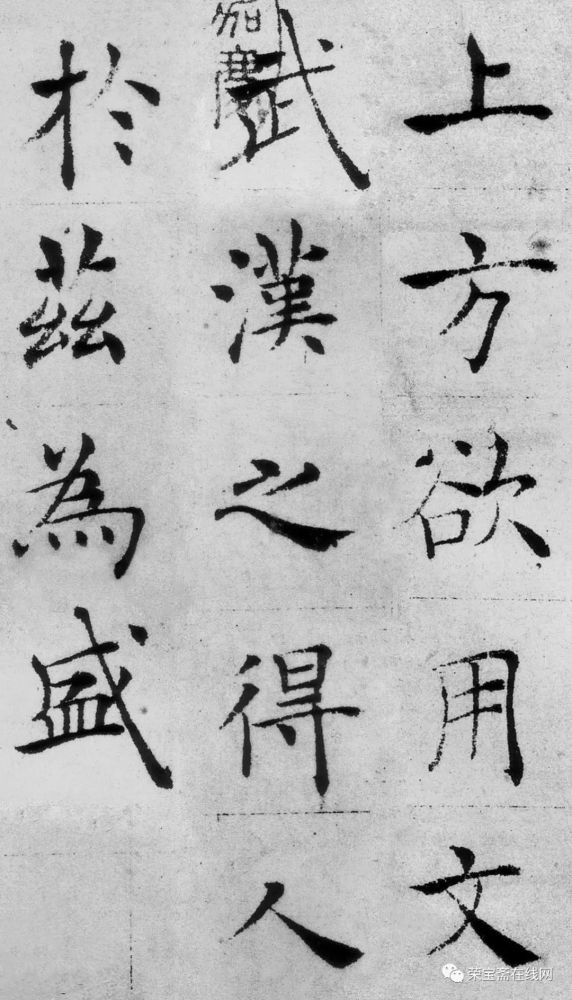 上方欲用文
武漢之得人
於茲為盛
荣宝斋在线网